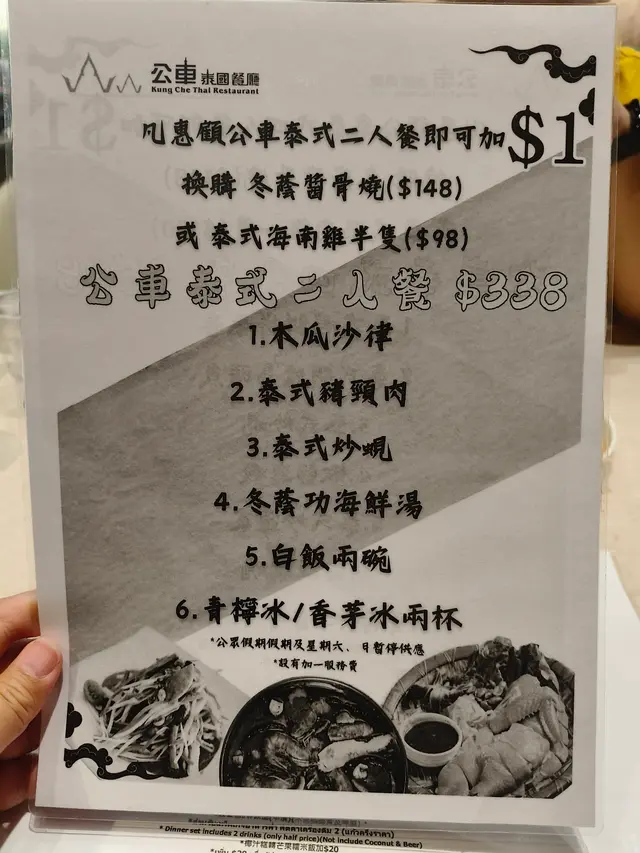 公車 泰國餐廳
Kung Che Thai Restaurant
凡惠顧公車泰式二人餐即可加$1
換購 冬蔭醬骨燒($148)
或 泰式海南雞半隻($98)
公車泰式二人餐 $338
1.木瓜沙律
2.泰式豬頸肉
3.泰式炒蜆
4.冬蔭功海鮮湯
5.白飯兩碗
6.青檸冰/香茅冰兩杯
*公眾假期假期及星期六、日暫停供應
*設有加一服務費
* Dinner set includes 2 drinks (only half price)(Not include Coconut & Beer)
*椰汁糕轉芒果糯米飯加$20